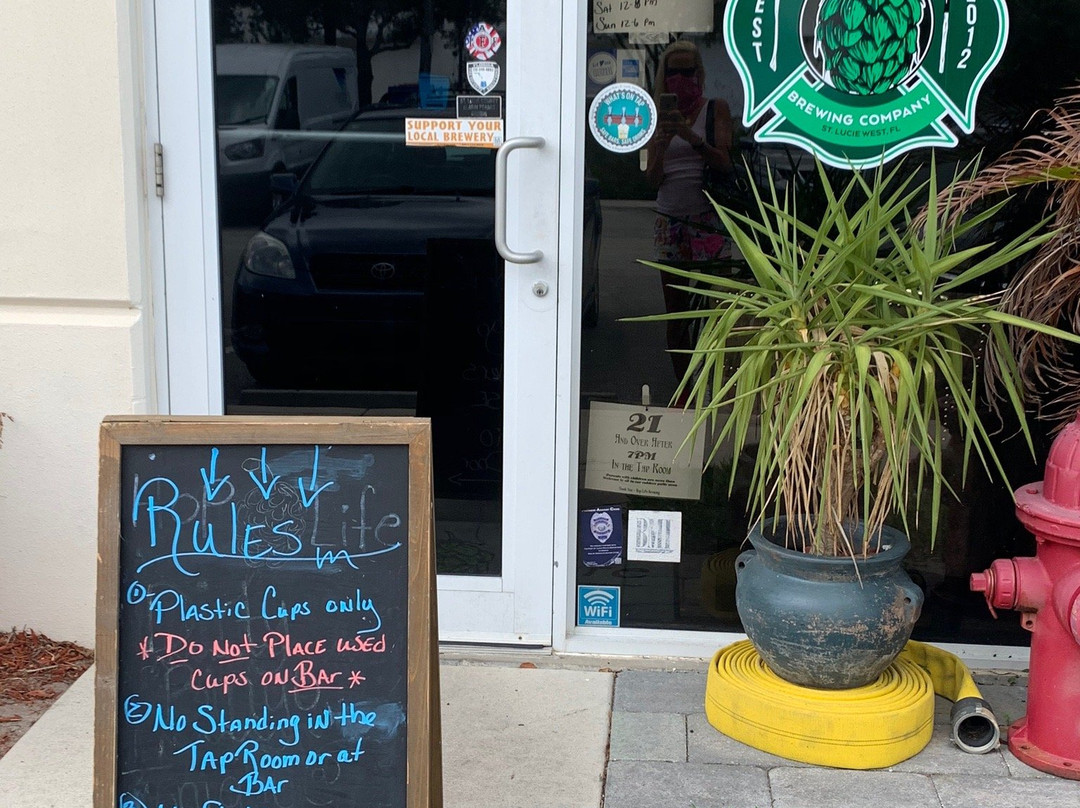 Sat 12-8 pm
Sun 12-6 pm
EST
2012
BREWING COMPANY
ST. LUCIE WEST, FL
FLORIDA
SUPPORT YOUR
LOCAL BREWERY
WHAT'S ON TAP
21
AND OVER AFTER
7PM
IN THE TAP ROOM
WiFi
Available
Hop Life
RULES
① Plastic Cups only
* DO NOT PLACE USED
CUPS ON BAR *
② No Standing in the
TAP Room or at
BAR